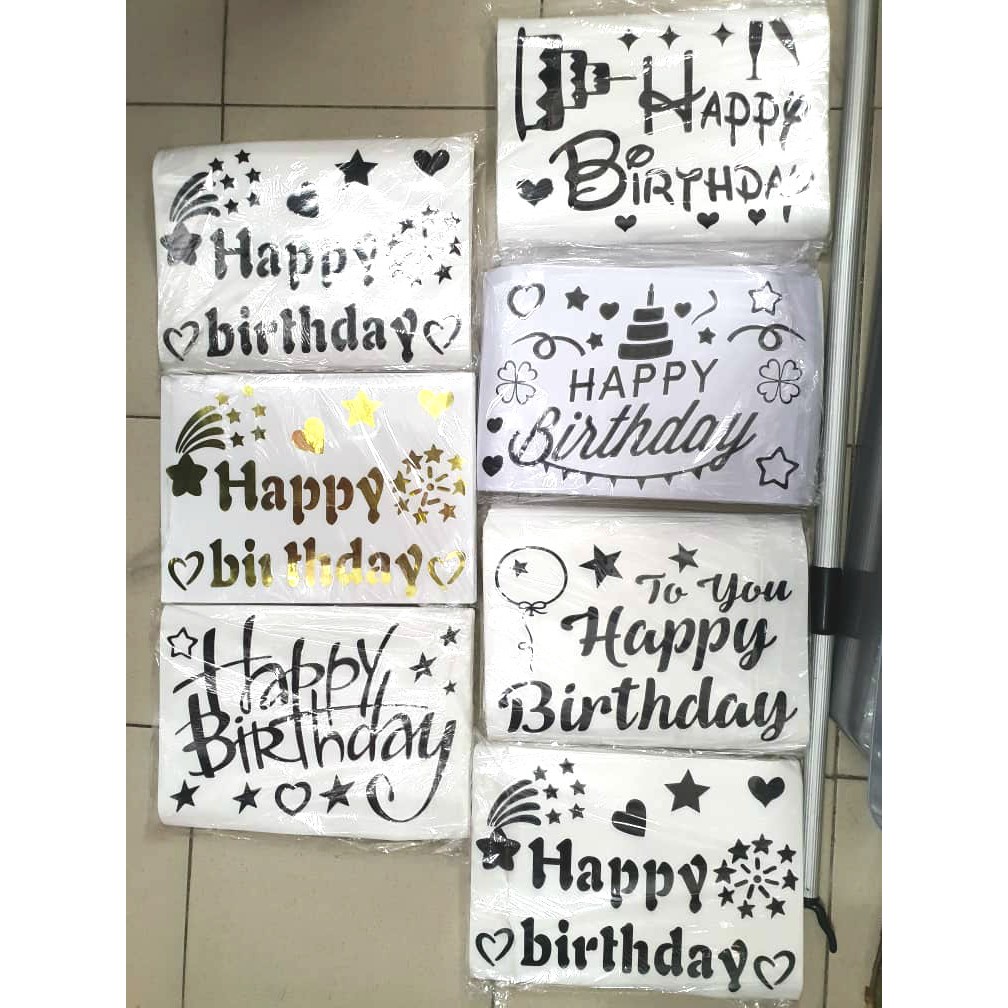 Happy
birthday
Happy
birthday
Happy
Birthday
Happy
Birthday
HAPPY
Birthday
To You
Happy
Birthday
Happy
birthday